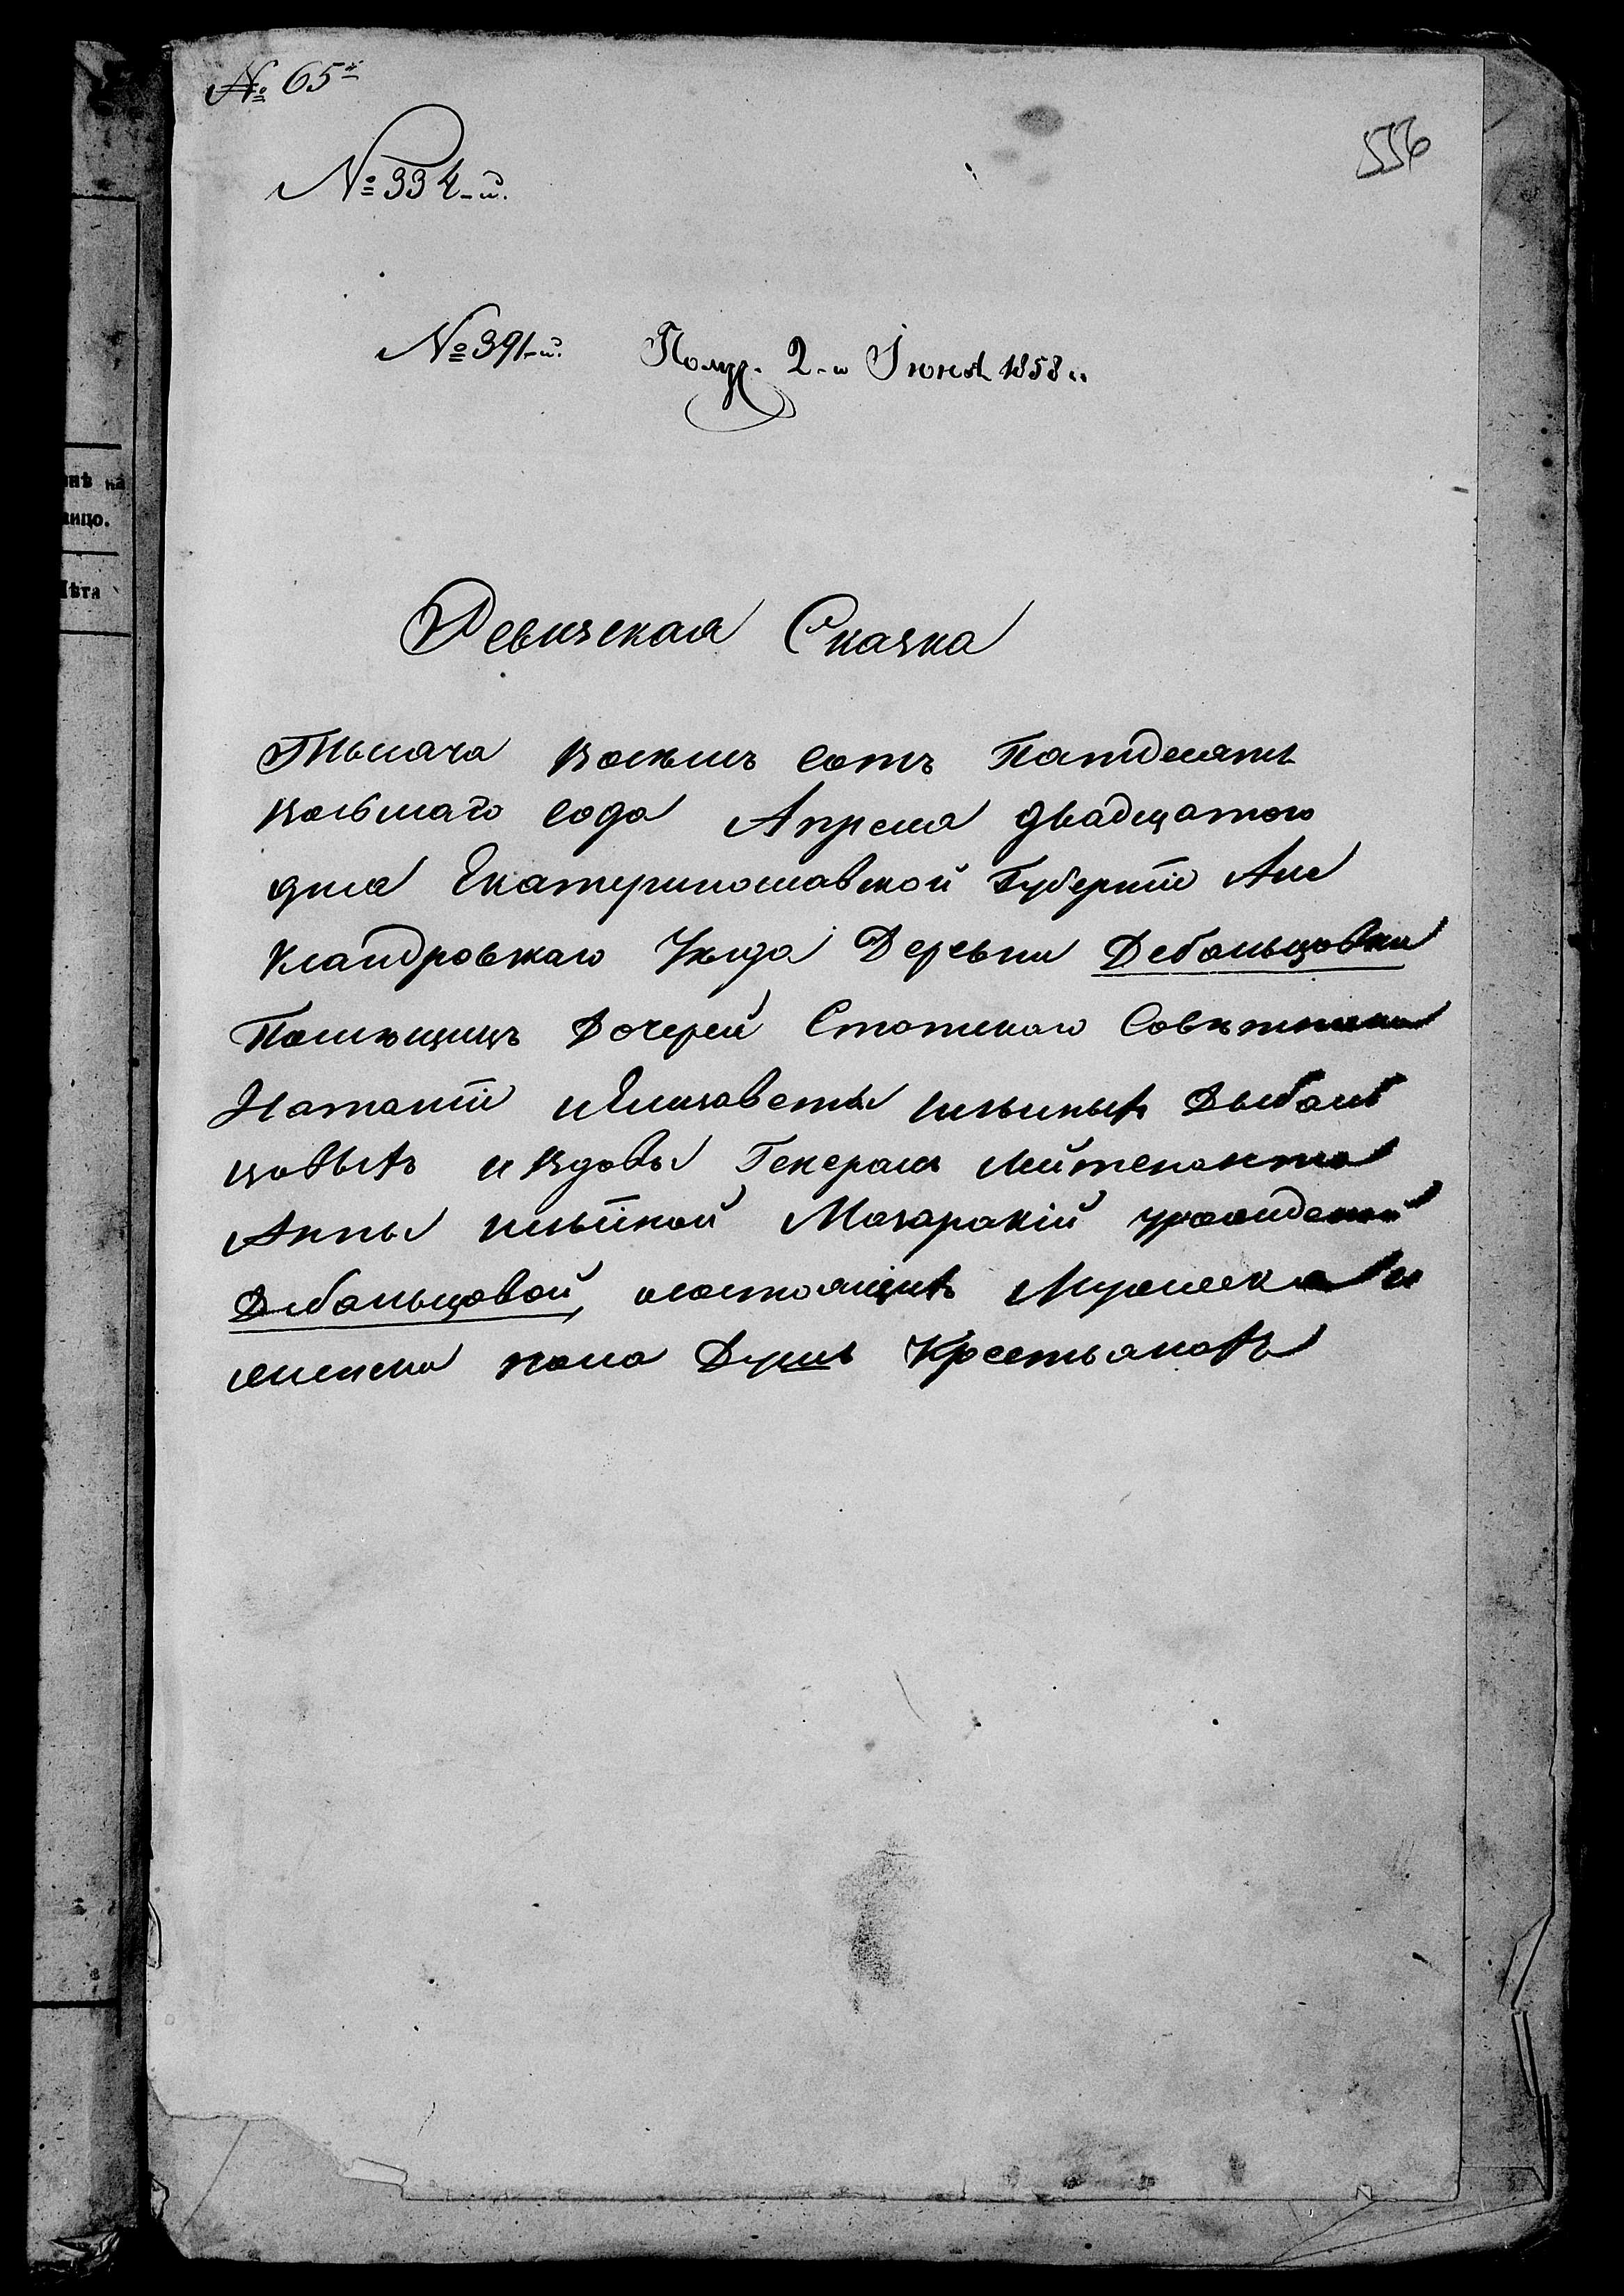 № 65й
556
№ 334-й.
№ 391-й. Получ. 2-го Июня 1858 г.
Ревизская Сказка
Тысяча восемь сотъ Пятдесятъ
восьмаго года Апреля двадцатого
дня Екатеринославской Губерніи Але
ксандровскаго Уезда Деревни Дебальцовки
Помещицъ Дочерей Статскаго Советника
Наталіи и Елизаветы Ильиныхъ Дебаль
цовыхъ и вдовы Генералъ Лейтенанта
Анны Ильиной Мазаракій урожденой
Дебальцовой, о состоящихъ Мужеска и
женска пола Душъ Крестьянахъ
инѣ на
лицо.
Лѣта